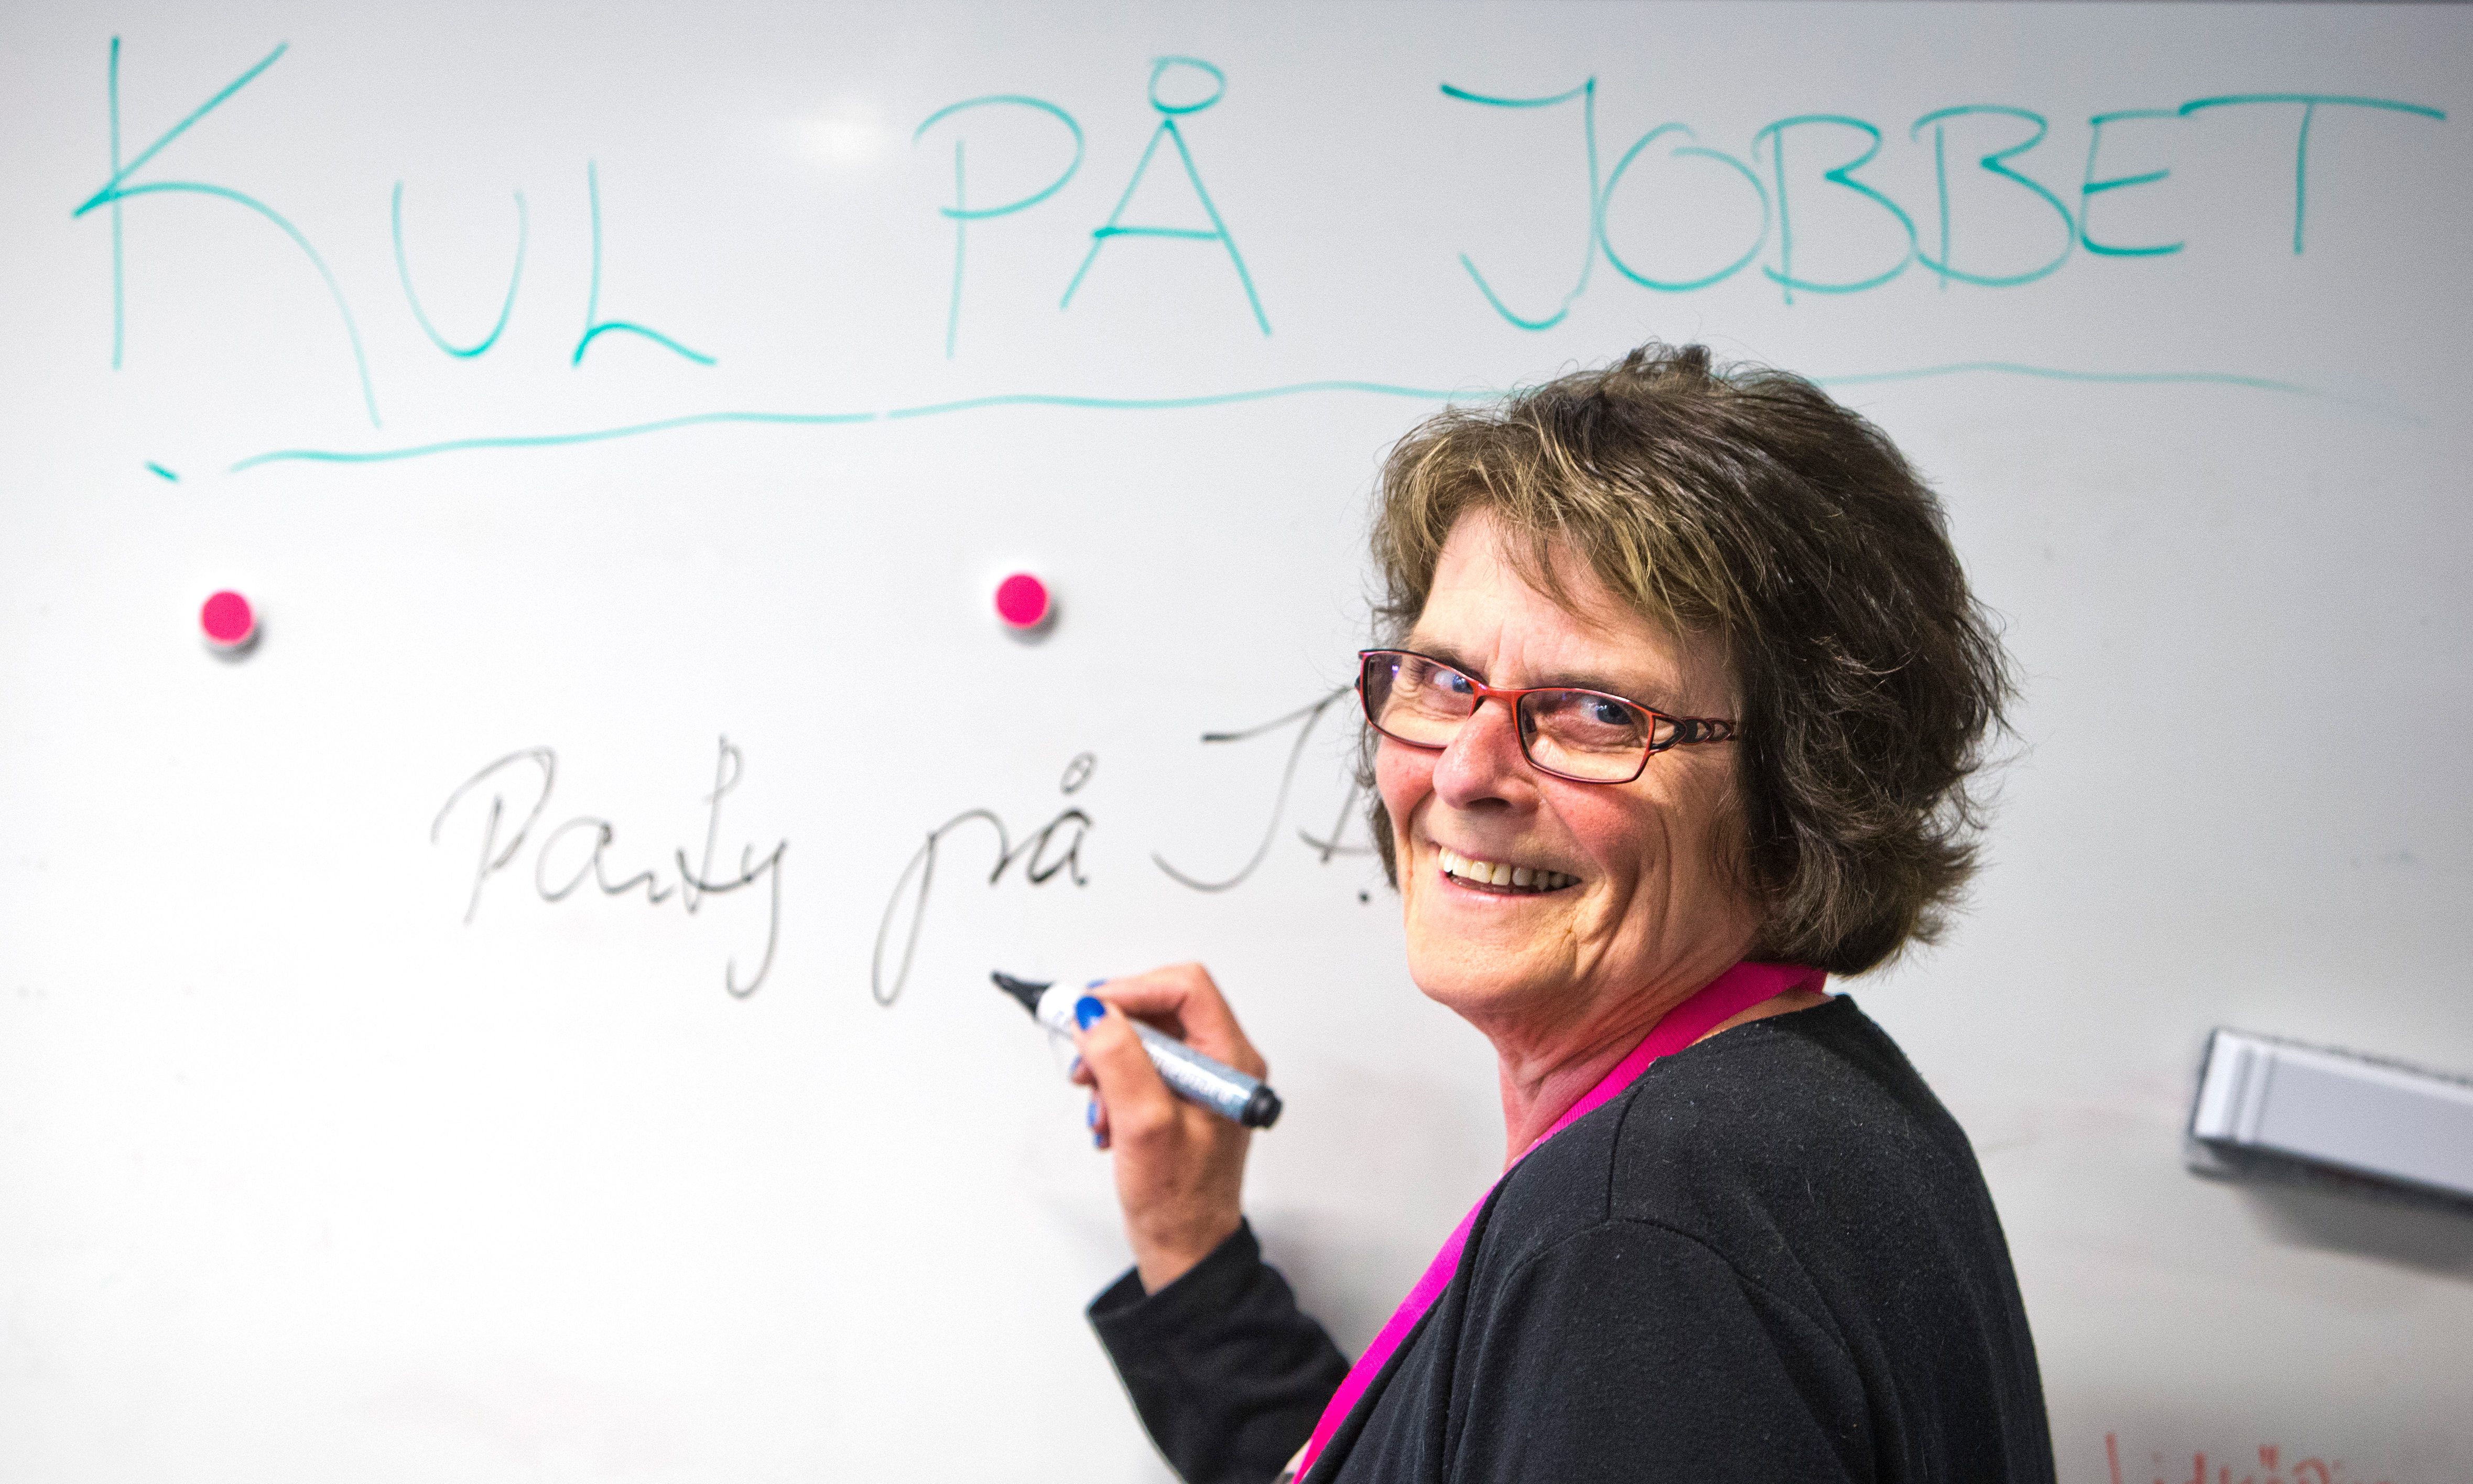 KUL PÅ JOBBET
Party på